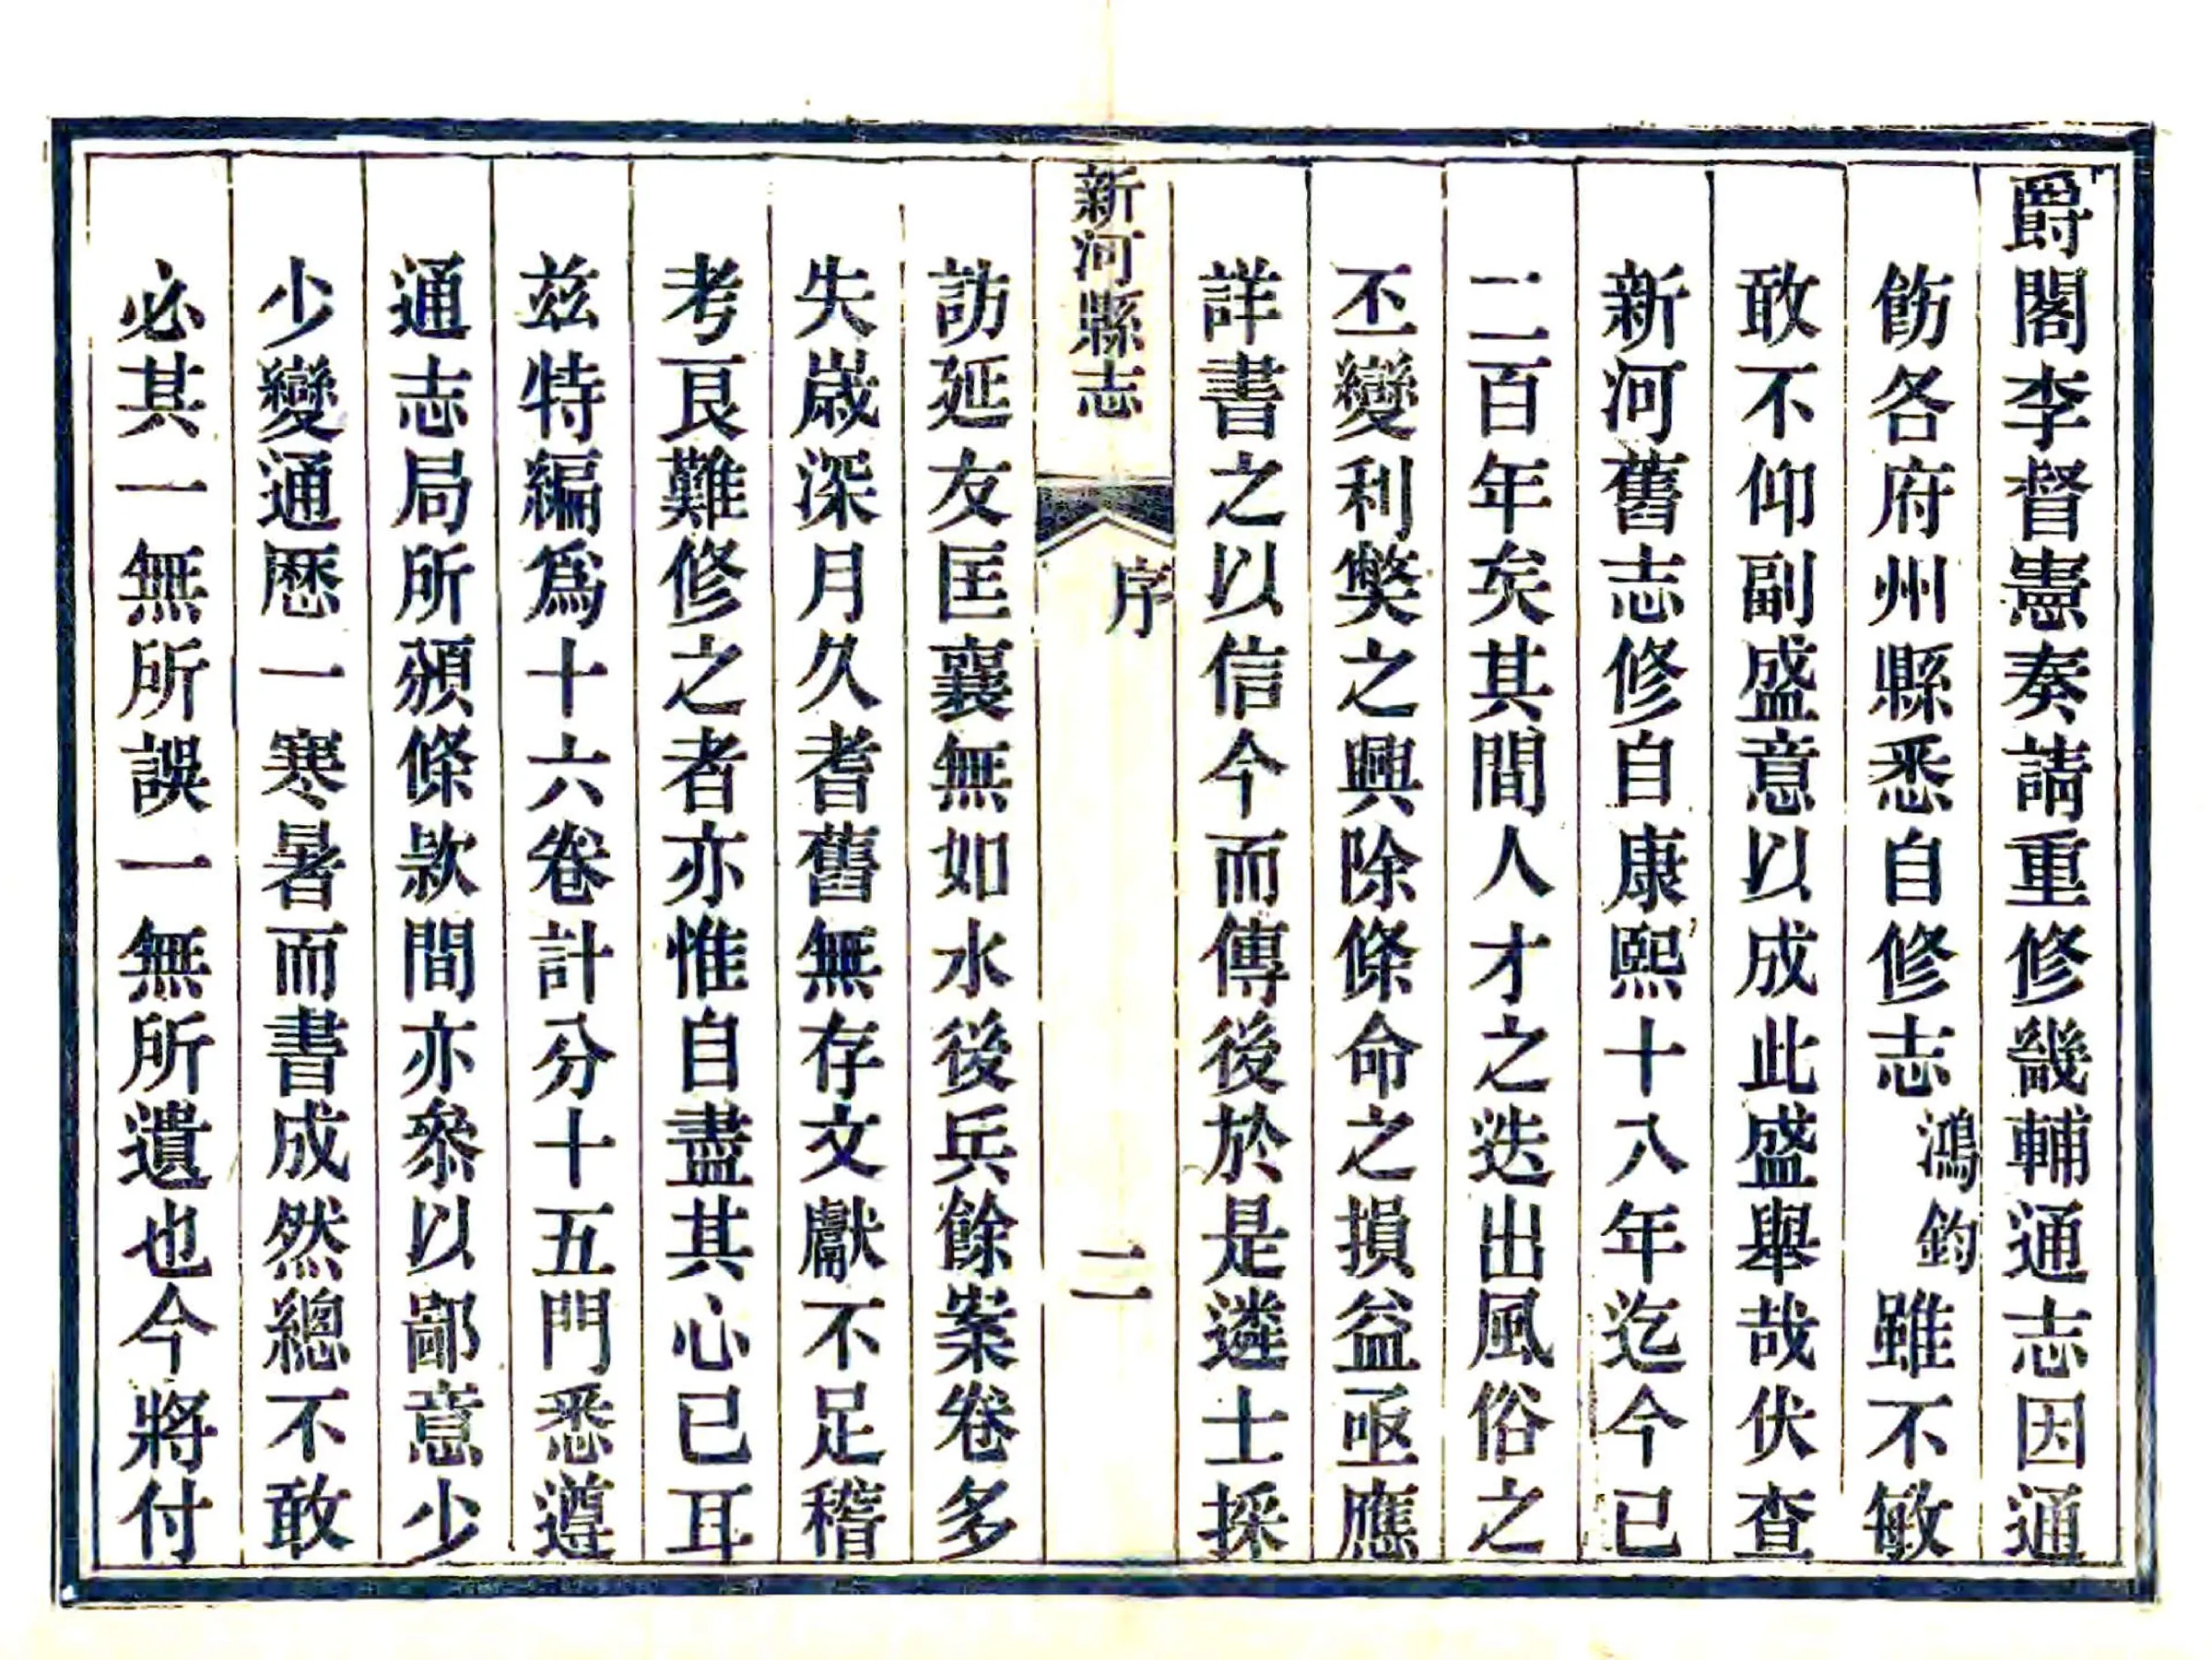 爵閣李督憲奏請重修畿輔通志因通
飭各府州縣悉自修志鴻鈞雖不敏
敢不仰副盛意以成此盛舉哉伏查
新河舊志修自康熙十八年迄今已
二百年矣其間人才之迭出風俗之
丕變利獘之興除條命之損益亟應
詳書之以信今而傳後於是遴士採
新河縣志
序
二
訪延友匡襄無如水後兵餘案卷多
失嵗深月久耆舊無存文獻不足稽
考艮難修之者亦惟自盡其心已耳
兹特編爲十六卷計分十五門悉遵
通志局所頒條款間亦叅以鄙意少
少變通厯一寒暑而書成然總不敢
必其一無所誤一無所遺也今將付